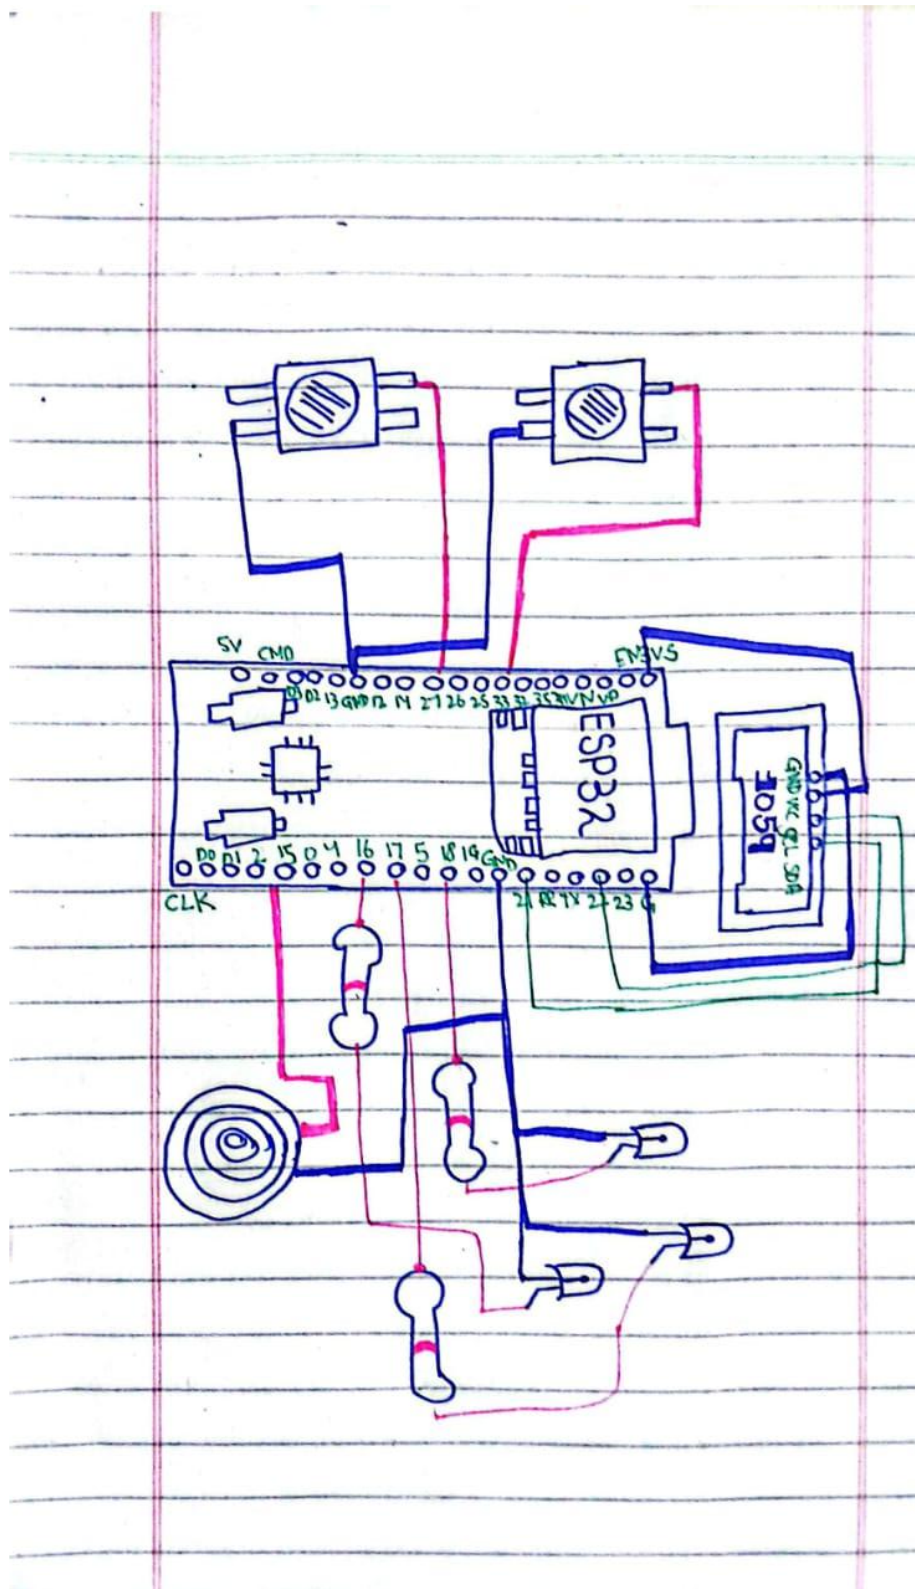 5V CMD EN 3V5
D3 D2 13 GND 12 14 27 26 25 33 32 35 34 VN VP
ESP32
GND VCC SCL SDA
1059
D0 D1 2 15 0 4 16 17 5 18 19 GND
CLK
21 RX TX 22 23 G